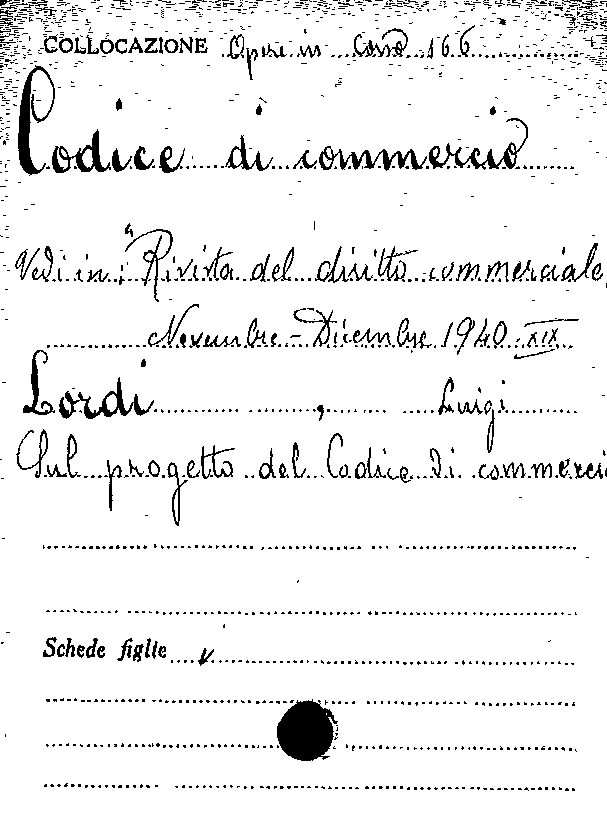 COLLOCAZIONE Opere in Corso 166
Codice di commercio
Vedi in: "Rivista del diritto commerciale,
Novembre - Dicembre 1940 XIX
Lordi , Luigi
Sul progetto del Codice di commerci
Schede figlie v